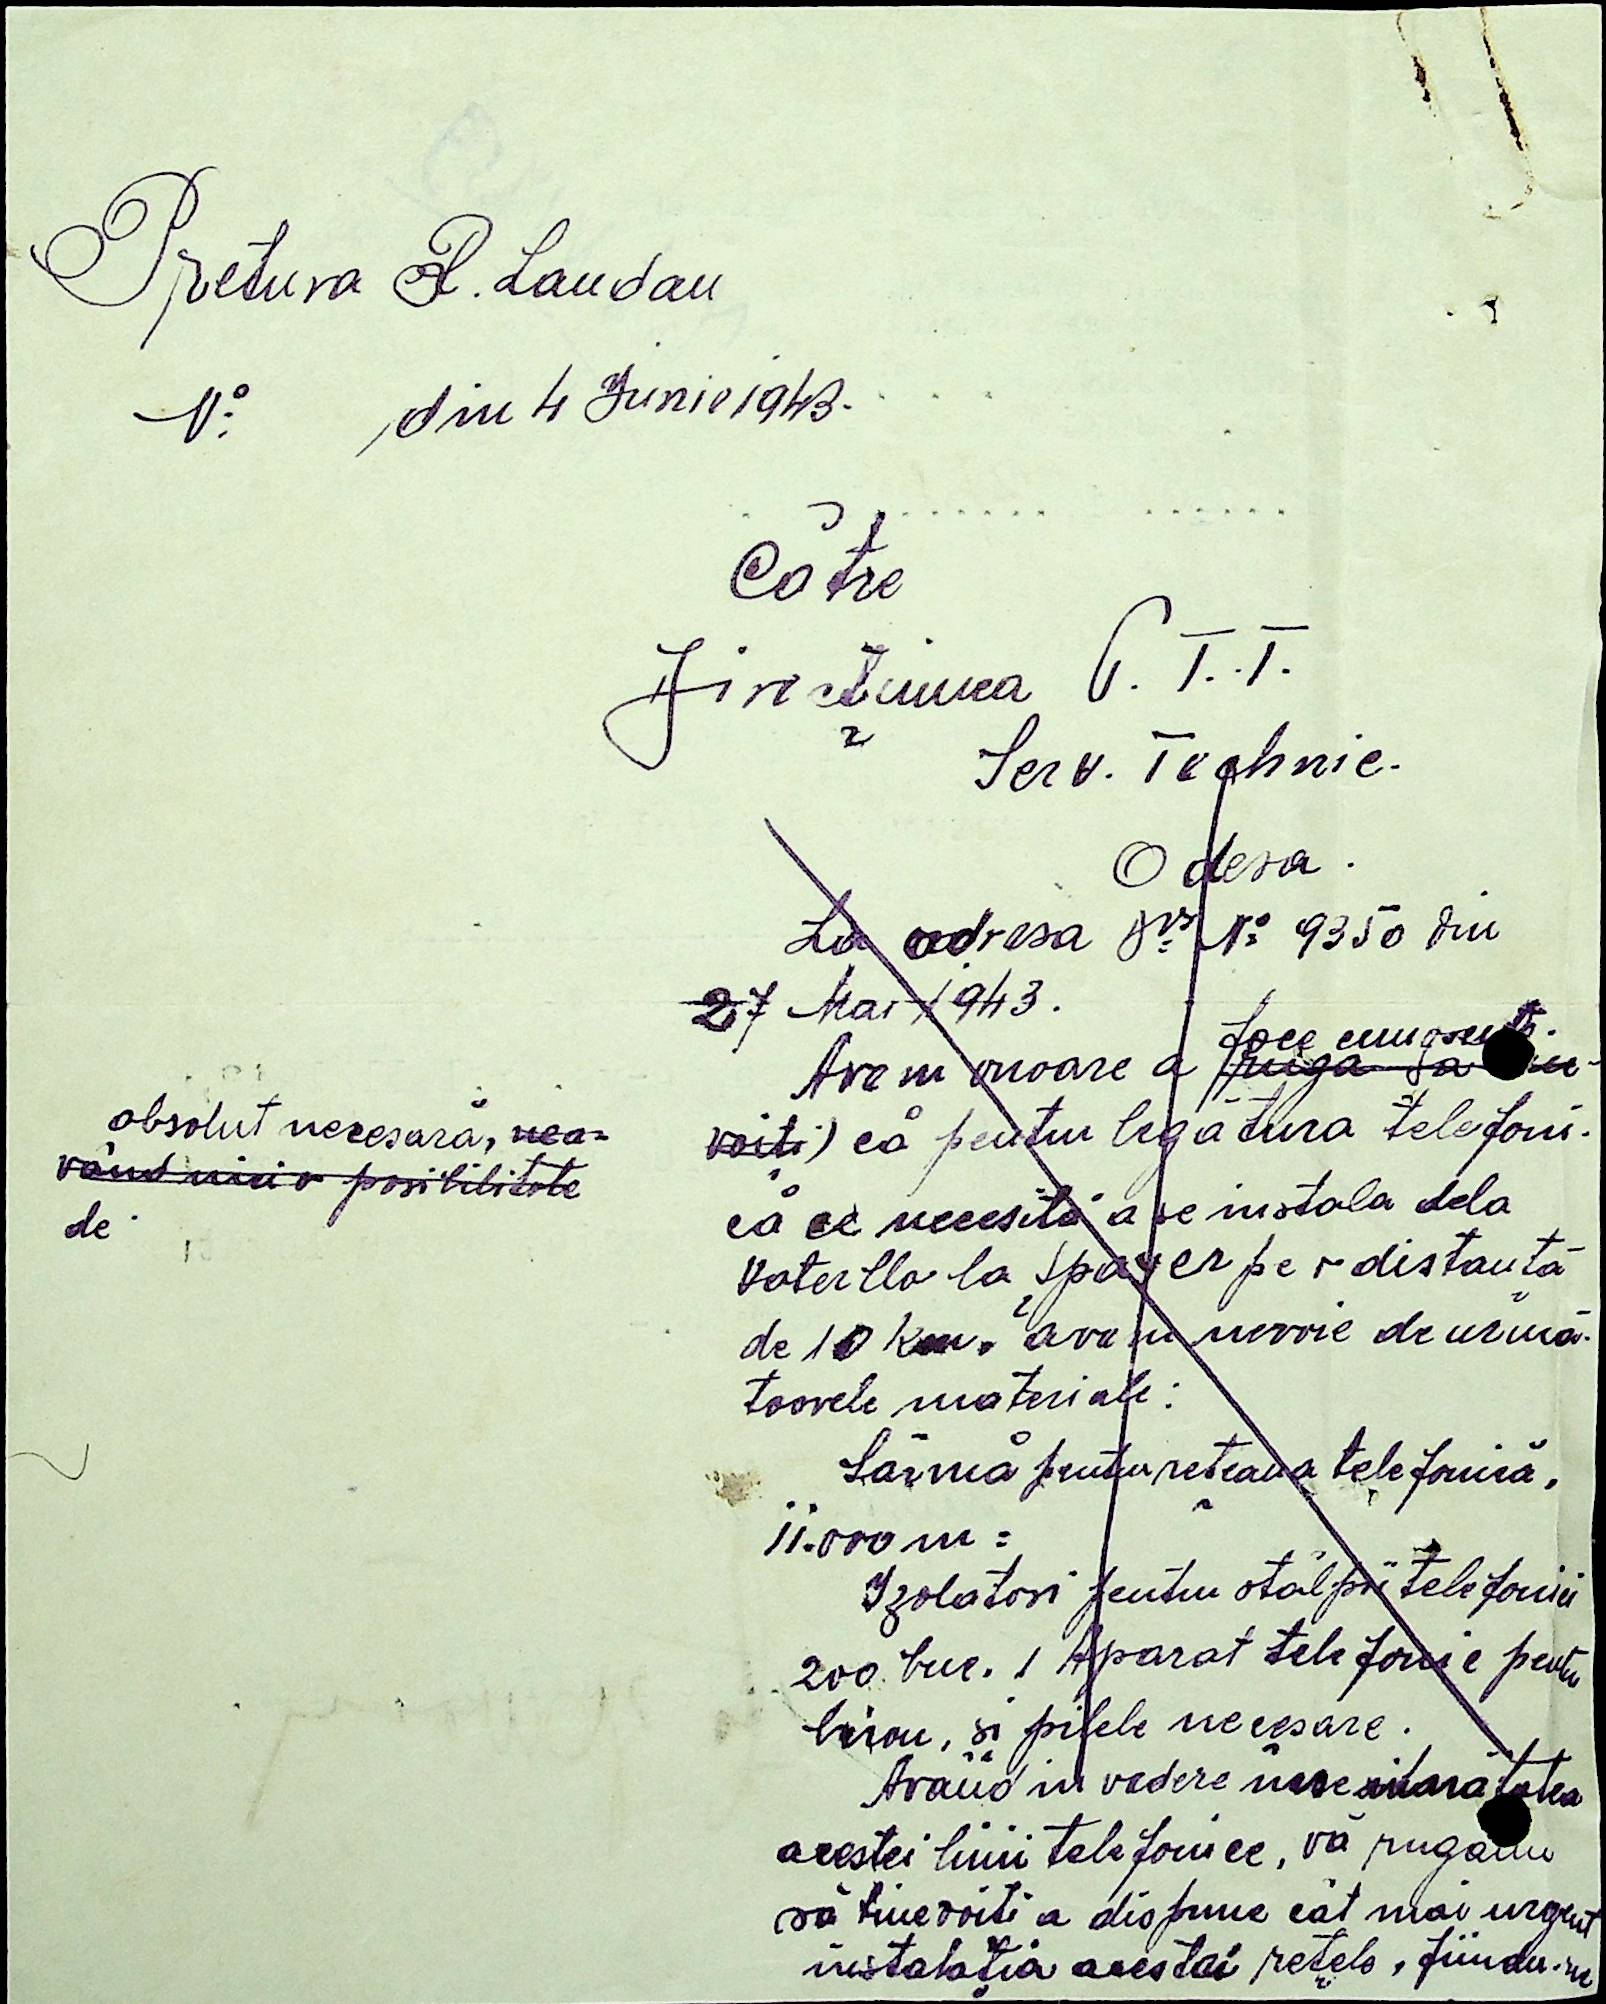 Pretura R. Landau
No: din 4 Junie 1943.
Către
Direcțiunea P.T.T.
Serv. Technic.
Odesa.
La adresa Dvs No: 9350 din
27 Mai 1943.
face cunoscut
Avem onoare a ruga sa
voiti) că pentru legătura telefoni-
că ce necesită a se instala dela
Vaterllo la Spayer pe o distanță
de 10 km. avem nevoie de urmă-
toarele materiale:
Sârmă pentru rețeaua telefonică,
11.000 m =
Izolatori pentru stâlpii telefonici
200 buc. 1 Aparat telefonic pentru
birou, și pilele necesare.
Având in vedere
acestei linii telefonice, vă rugăm
să binevoiti a dispune cât mai urgent
instalația acestei rețele, fiindu-ne
absolut necesară, nea=
vând nici o posibilitate
de